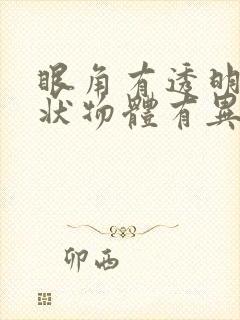 眼角有透明
狀物體有異
卯西